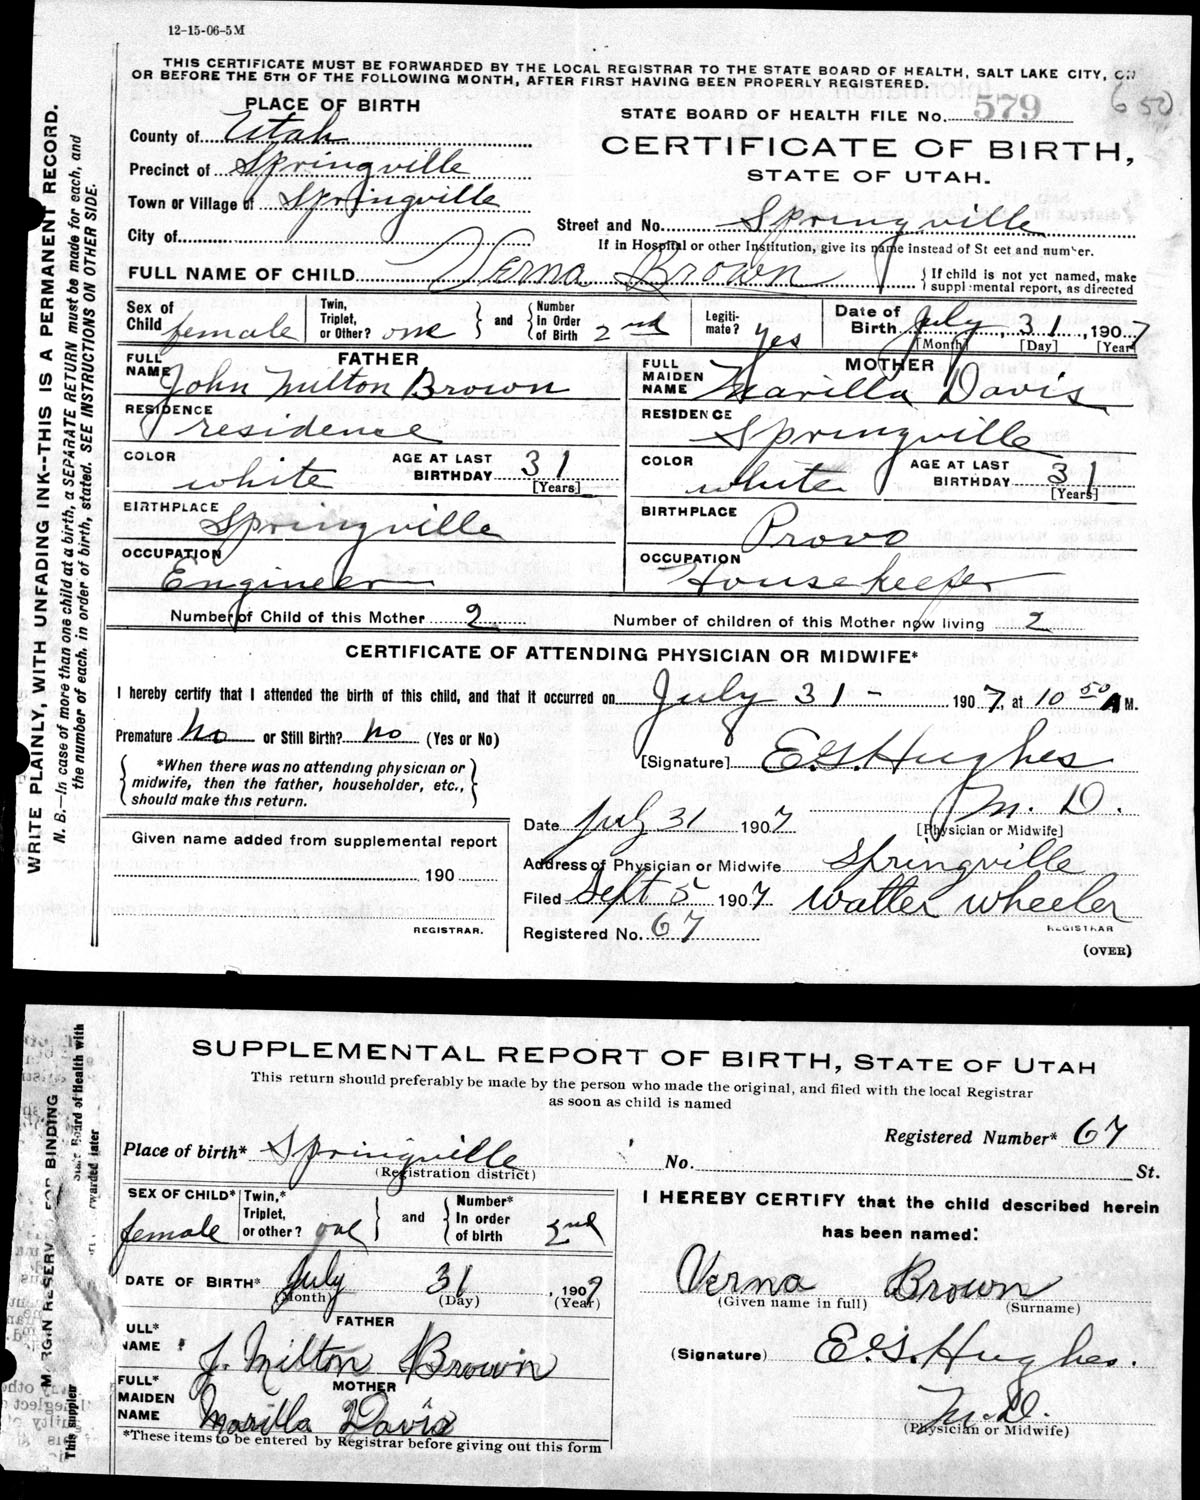 12-15-06-5M
THIS CERTIFICATE MUST BE FORWARDED BY THE LOCAL REGISTRAR TO THE STATE BOARD OF HEALTH, SALT LAKE CITY, ON
OR BEFORE THE 5TH OF THE FOLLOWING MONTH, AFTER FIRST HAVING BEEN PROPERLY REGISTERED.
WRITE PLAINLY, WITH UNFADING INK--THIS IS A PERMANENT RECORD.
N. B.—In case of more than one child at a birth, a SEPARATE RETURN must be made for each, and
the number of each, in order of birth, stated. SEE INSTRUCTIONS ON OTHER SIDE.
PLACE OF BIRTH
County of Utah
Precinct of Springville
Town or Village of Springville
City of
STATE BOARD OF HEALTH FILE No. 579
650
CERTIFICATE OF BIRTH,
STATE OF UTAH.
Street and No. Springville
If in Hospital or other Institution, give its name instead of St eet and number.
FULL NAME OF CHILD Verna Brown
{ If child is not yet named, make
suppl mental report, as directed
Sex of Child female
Twin, Triplet, or Other? one } and { Number In Order of Birth 2nd
Legitimate? yes
Date of Birth July 31, 1907
[Month] [Day] [Year]
FATHER
FULL NAME John Milton Brown
RESIDENCE residence
COLOR white AGE AT LAST BIRTHDAY 31 [Years]
BIRTHPLACE Springville
OCCUPATION Engineer
MOTHER
FULL MAIDEN NAME Marilla Davis
RESIDENCE Springville
COLOR white AGE AT LAST BIRTHDAY 31 [Years]
BIRTHPLACE Provo
OCCUPATION Housekeeper
Number of Child of this Mother 2 Number of children of this Mother now living 2
CERTIFICATE OF ATTENDING PHYSICIAN OR MIDWIFE*
I hereby certify that I attended the birth of this child, and that it occurred on July 31 - 1907, at 10 50 A M.
Premature No or Still Birth? No (Yes or No)
{ *When there was no attending physician or
midwife, then the father, householder, etc.,
should make this return. }
[Signature] E.G. Hughes
M. D.
[Physician or Midwife]
Given name added from supplemental report
190
REGISTRAR.
Date July 31 1907
Address of Physician or Midwife Springville
Filed Sept 5 1907 Walter Wheeler
REGISTRAR
Registered No. 67
(OVER)
SUPPLEMENTAL REPORT OF BIRTH, STATE OF UTAH
This return should preferably be made by the person who made the original, and filed with the local Registrar
as soon as child is named
Registered Number* 67
Place of birth* Springville No. St.
(Registration district)
SEX OF CHILD* female
Twin,* Triplet, or other? one } and { Number* In order of birth 2nd
DATE OF BIRTH* July 31, 1907
(Month) (Day) (Year)
FATHER
ULL* NAME J. Milton Brown
MOTHER
FULL* MAIDEN NAME Marilla Davis
*These items to be entered by Registrar before giving out this form
I HEREBY CERTIFY that the child described herein
has been named:
Verna Brown
(Given name in full) (Surname)
(Signature) E.G. Hughes.
M.D.
(Physician or Midwife)